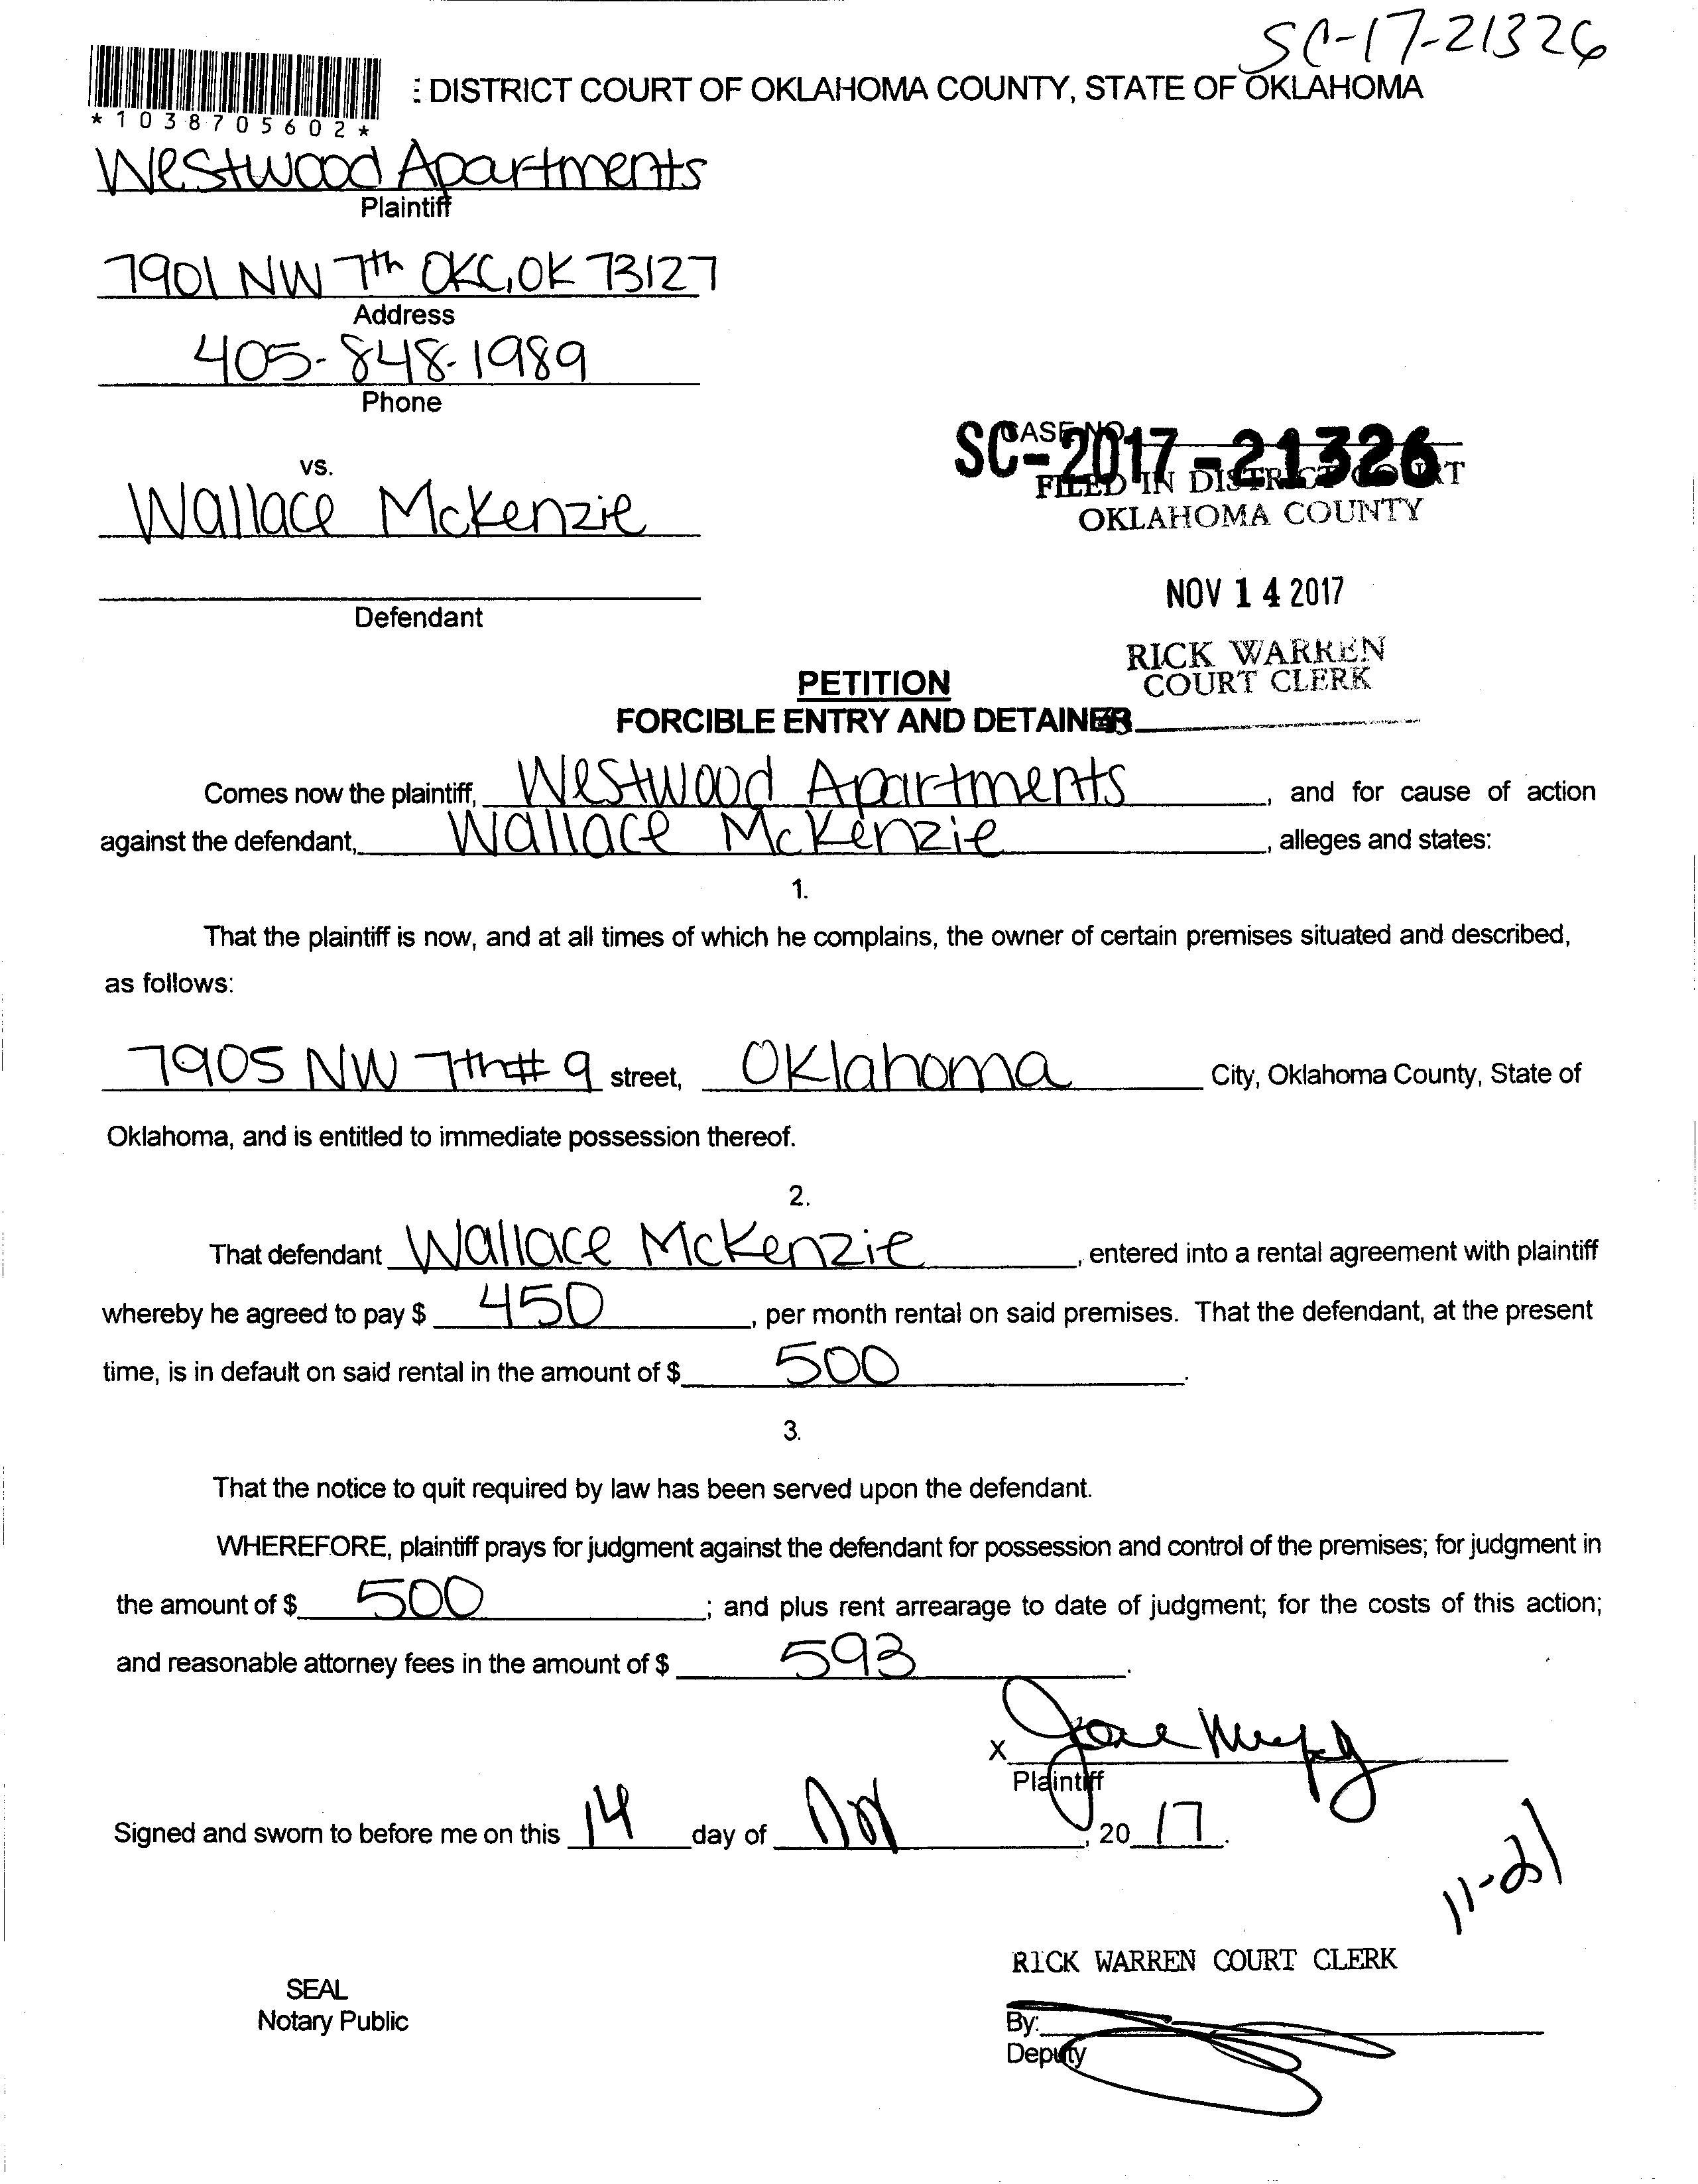 SC-17-21326
: DISTRICT COURT OF OKLAHOMA COUNTY, STATE OF OKLAHOMA
*1038705602*
Westwood Apartments
Plaintiff
7901 NW 7th OKC, OK 73127
Address
405-848-1989
Phone
CASE NO.
SC-2017-21326
FILED IN DISTRICT COURT
OKLAHOMA COUNTY
vs.
Wallace McKenzie
NOV 14 2017
Defendant
RICK WARREN
COURT CLERK
PETITION
FORCIBLE ENTRY AND DETAINER
Comes now the plaintiff, Westwood Apartments, and for cause of action
against the defendant, Wallace McKenzie, alleges and states:
1.
That the plaintiff is now, and at all times of which he complains, the owner of certain premises situated and described,
as follows:
7905 NW 7th # 9 street, Oklahoma City, Oklahoma County, State of
Oklahoma, and is entitled to immediate possession thereof.
2.
That defendant Wallace McKenzie, entered into a rental agreement with plaintiff
whereby he agreed to pay $ 450, per month rental on said premises. That the defendant, at the present
time, is in default on said rental in the amount of $ 500.
3.
That the notice to quit required by law has been served upon the defendant.
WHEREFORE, plaintiff prays for judgment against the defendant for possession and control of the premises; for judgment in
the amount of $ 500; and plus rent arrearage to date of judgment; for the costs of this action;
and reasonable attorney fees in the amount of $ 593.
X
Plaintiff
Signed and sworn to before me on this 14 day of Nov, 20 17.
11-21
RICK WARREN COURT CLERK
SEAL
Notary Public
By:
Deputy